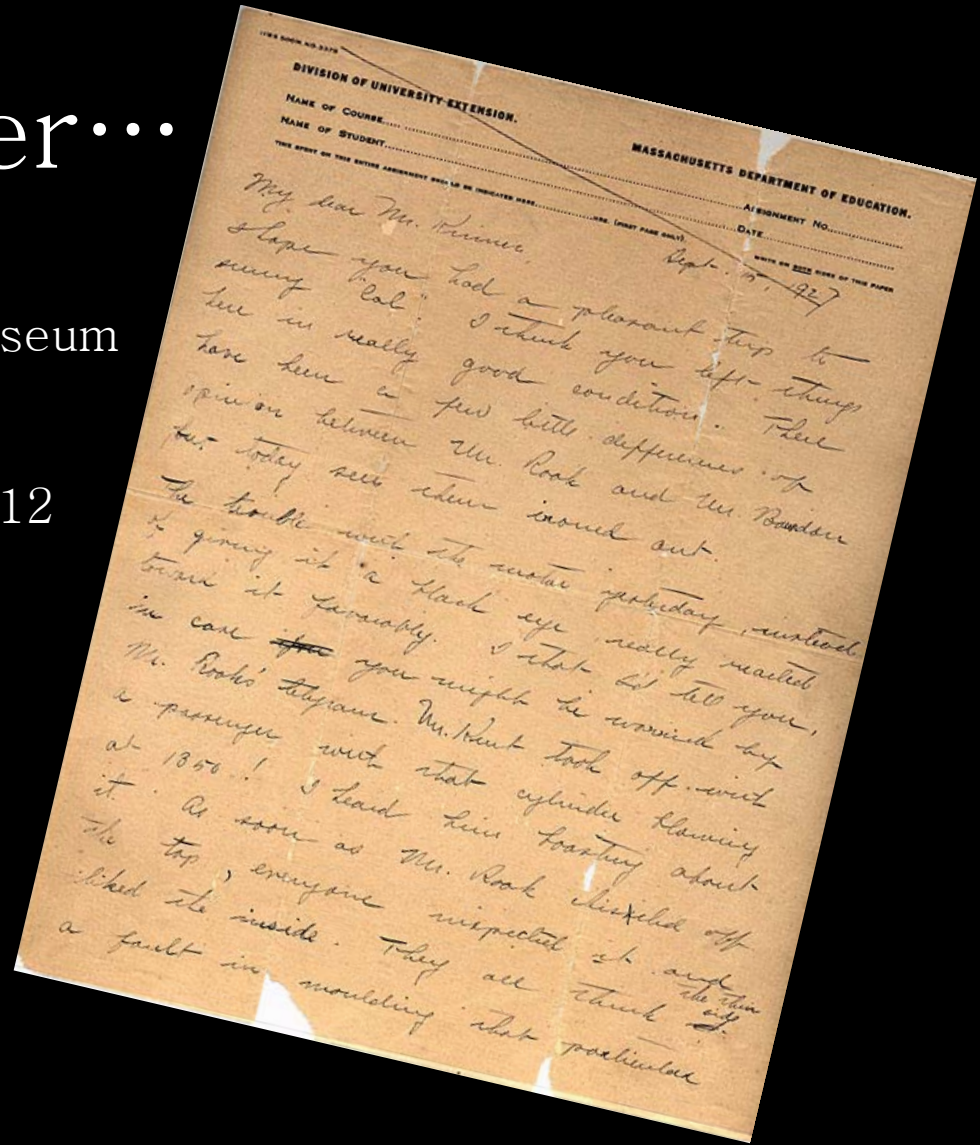 er…
seum
12
ITEM BOOK NO. 2378
DIVISION OF UNIVERSITY EXTENSION.
MASSACHUSETTS DEPARTMENT OF EDUCATION.
NAME OF COURSE
ASSIGNMENT No.
NAME OF STUDENT
DATE
TIME SPENT ON THIS ENTIRE ASSIGNMENT SHOULD BE INDICATED HERE HRS. (FIRST PAGE ONLY)
WRITE ON BOTH SIDES OF THIS PAPER
Sept. 1927
My dear Mr. Kinner,
I hope you had a pleasant trip to
sunny "Cal". I think you left things
here in really good condition. There
have been a few little differences of
opinion between Mr. Rook and Mr.
but today sees them ironed out.
The trouble with the motor yesterday, instead
of giving it a black eye, really reacted
toward it favorably. I that I'd tell you,
in case you might be worried by
Mr. Rooks' telegram. Mr. took off with
a passenger with that cylinder blowing
at 1850! I heard him boasting about
it. As soon as Mr. Rook chiseled off
the top, everyone inspected it and
liked the inside. They all think the thin
side
a fault in moulding that particular